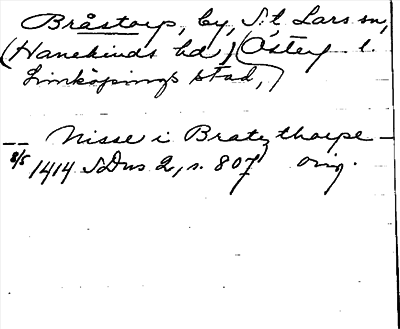 Bråstorp, by, S:t Lars sn,
(Hanekinds hd) (Österg. l.
Linköpings stad,)
— Nisse i Bratzthorpe —
8/5 1414 SDns 2, s. 807 orig.